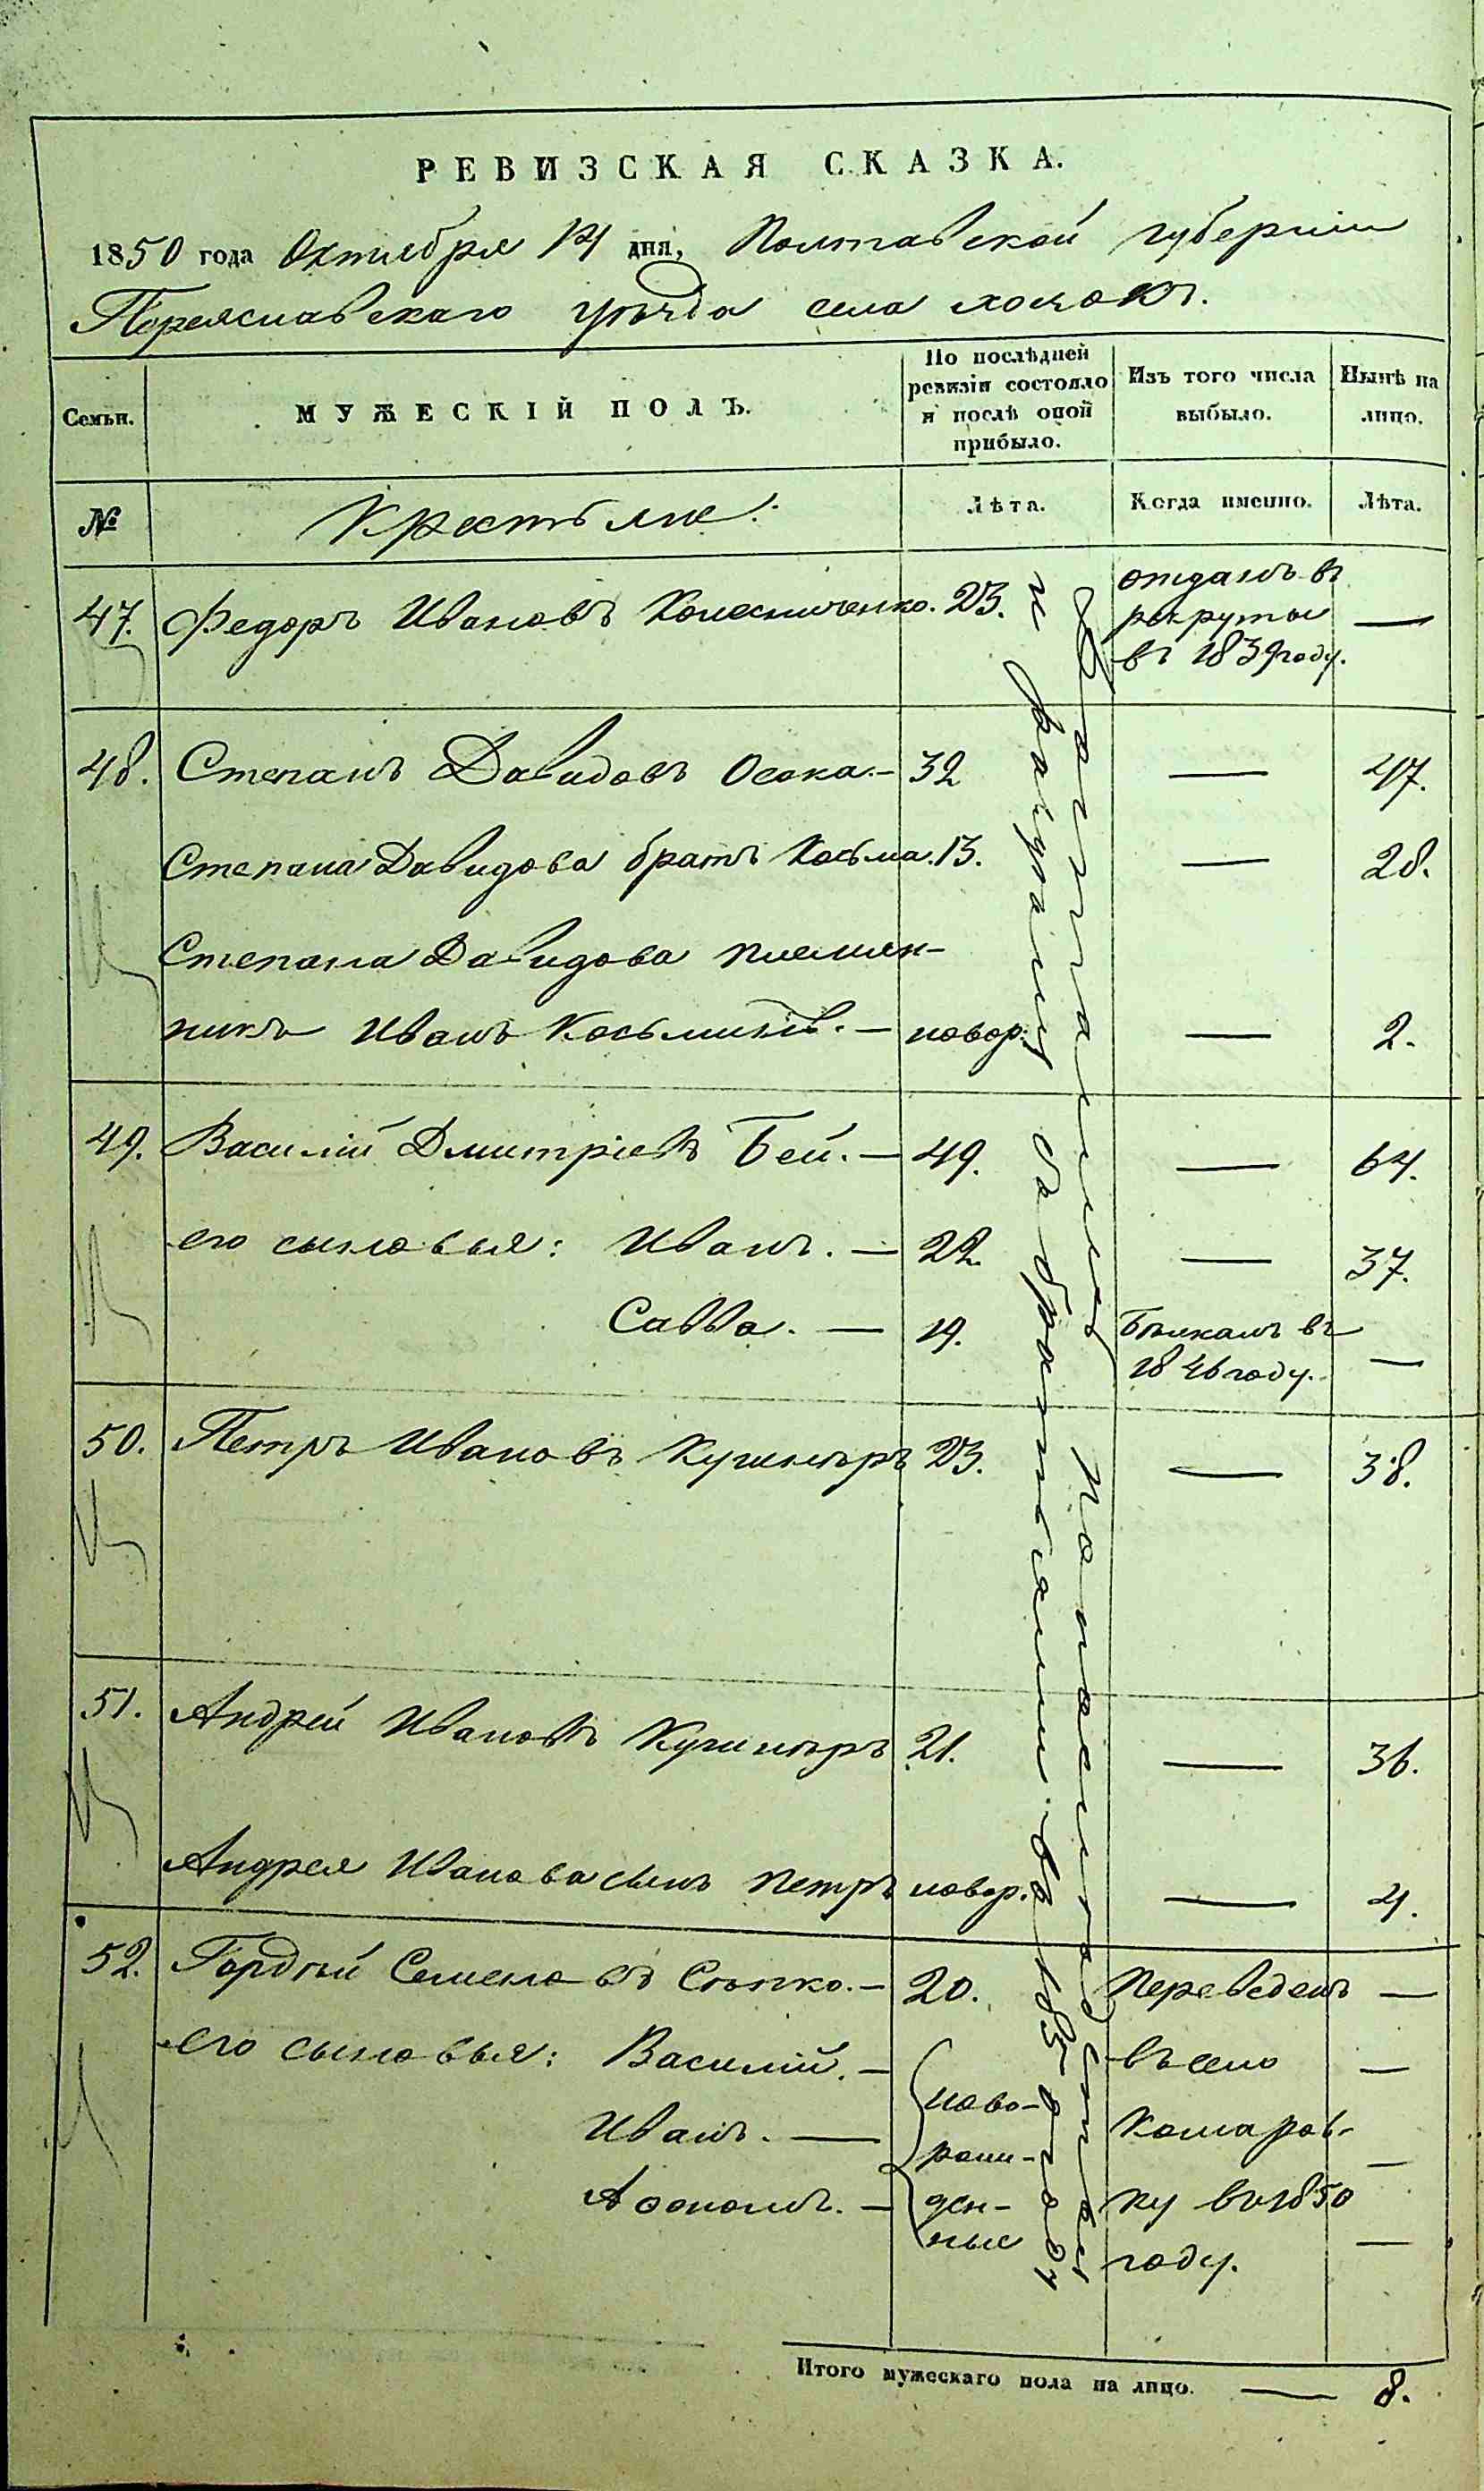 РЕВИЗСКАЯ СКАЗКА.
1850 года Октября 14 дня, Полтавской губерніи
Переяславскаго уѣзда села хоцокъ.
Семьи.
МУЖЕСКІЙ ПОЛЪ.
По послѣдней ревизіи состояло и послѣ оной прибыло.
Изъ того числа выбыло.
Нынѣ на лицо.
№
Крестьяне:
Лѣта.
Когда именно.
Лѣта.
47. Федоръ Ивановъ Колесниченко. 23. отданъ въ рекруты въ 1839 году. —
48. Степанъ Давидовъ Осока. — 32 — 47.
Степана Давидова братъ Косьма. 13. — 28.
Степана Давидова племян-
никъ Иванъ Косьминъ. — новор. — 2.
49. Василій Дмитріевъ Бей. — 49. — 64.
его сыновья: Иванъ. — 22 — 37.
Савва. — 19. Бѣжалъ въ 1846 году. —
50. Петръ Ивановъ 23. — 38.
51. Андрей Ивановъ 21. — 36.
Андрея Иванова сынъ Петръ новор. — 4.
52. Гордѣй Семеновъ — 20. Переведенъ —
его сыновья: Василій. — въ село —
Иванъ. — ново- Комаров- —
рож-
Афонасій. — ден- ку въ 1850 —
ные году.
въ 1850 году
Итого мужескаго пола на лицо. — 8.